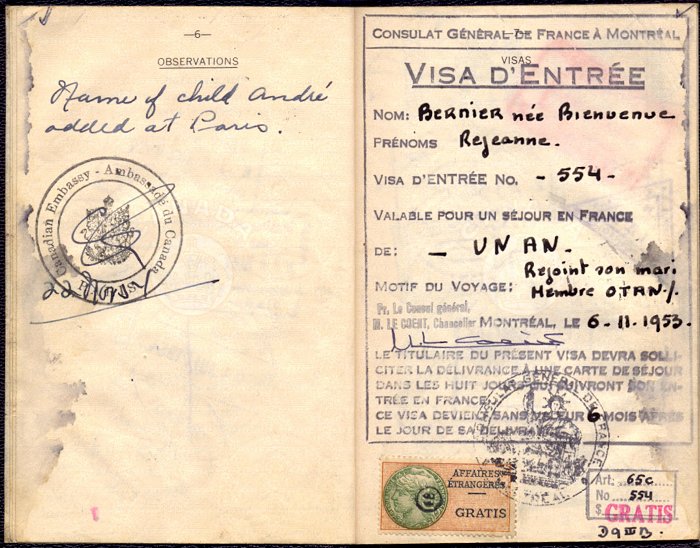 —6—
OBSERVATIONS
Name of child André
added at Paris.
Canadian Embassy - Ambassade du Canada
—7—
VISAS
CONSULAT GÉNÉRAL DE FRANCE À MONTRÉAL
VISA D'ENTRÉE
NOM: BERNIER née BIENVENUE
PRÉNOMS Rejeanne.
VISA D'ENTRÉE NO. - 554 -
VALABLE POUR UN SÉJOUR EN FRANCE
DE: — UN AN.
Rejoint son mari
MOTIF DU VOYAGE: Membre OTAN/.
Pr. Le Consul général,
M. LE COENT, Chancelier MONTRÉAL, LE 6-11-1953.
LE TITULAIRE DU PRÉSENT VISA DEVRA SOLLI-
CITER LA DÉLIVRANCE À UNE CARTE DE SÉJOUR
DANS LES HUIT JOURS QUI SUIVRONT SON EN-
TRÉE EN FRANCE.
CE VISA DEVIENT SANS VALEUR 6 MOIS APRÈS
LE JOUR DE SA DÉLIVRANCE.
CONSULAT GÉNÉRAL DE FRANCE
MONTRÉAL
AFFAIRES
ÉTRANGÈRES
GRATIS
Art. 65c
No 554
$ GRATIS
1